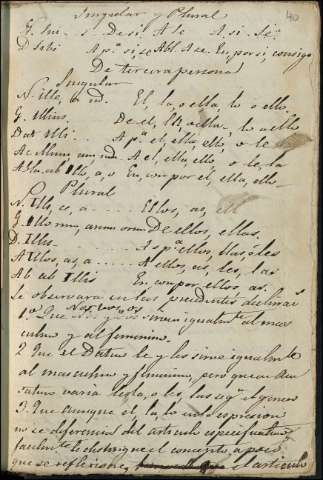 Singular y Plural
40
G. Sui - s De si A le A si. Se.
D. Sibi A pª si, se Abl. A se. En, por si, consigo
De tercera persona
Singular
N. Ille, a, ud. El, la, o ella, lo o ello.
G. Illius, De el, ella, lo o ello
Dat. Illi A pª el, ella, ello, o le
Ac. Illum, am, ud. A el, ella, ello, o le, la
Abla. ab Illo, a, o En, con, por el, ella, ello
Plural
N. Illi, e, a Ellos, as,
G. Illorum, arum orum De ellos, ellas.
D. Illis A pª ellos, llas o les
A Illos, as, a A ellos, as, les, las
Ab ab Illis En, con, por ellos, as.
Se observara en las precedentes declina.s
1º Que Nos, vos, os sirven igualmte al mas
culino y al femenino.
2 Que el Dativo le y les sirve igualmte
al masculino y femenino, pero que en Acu
sativo varia
3º. Que aunque el, la, lo en la espresion
no se diferencia del articulo especificativo
facilmte le distingue el concepto, a poco
que se reflexione, el articulo